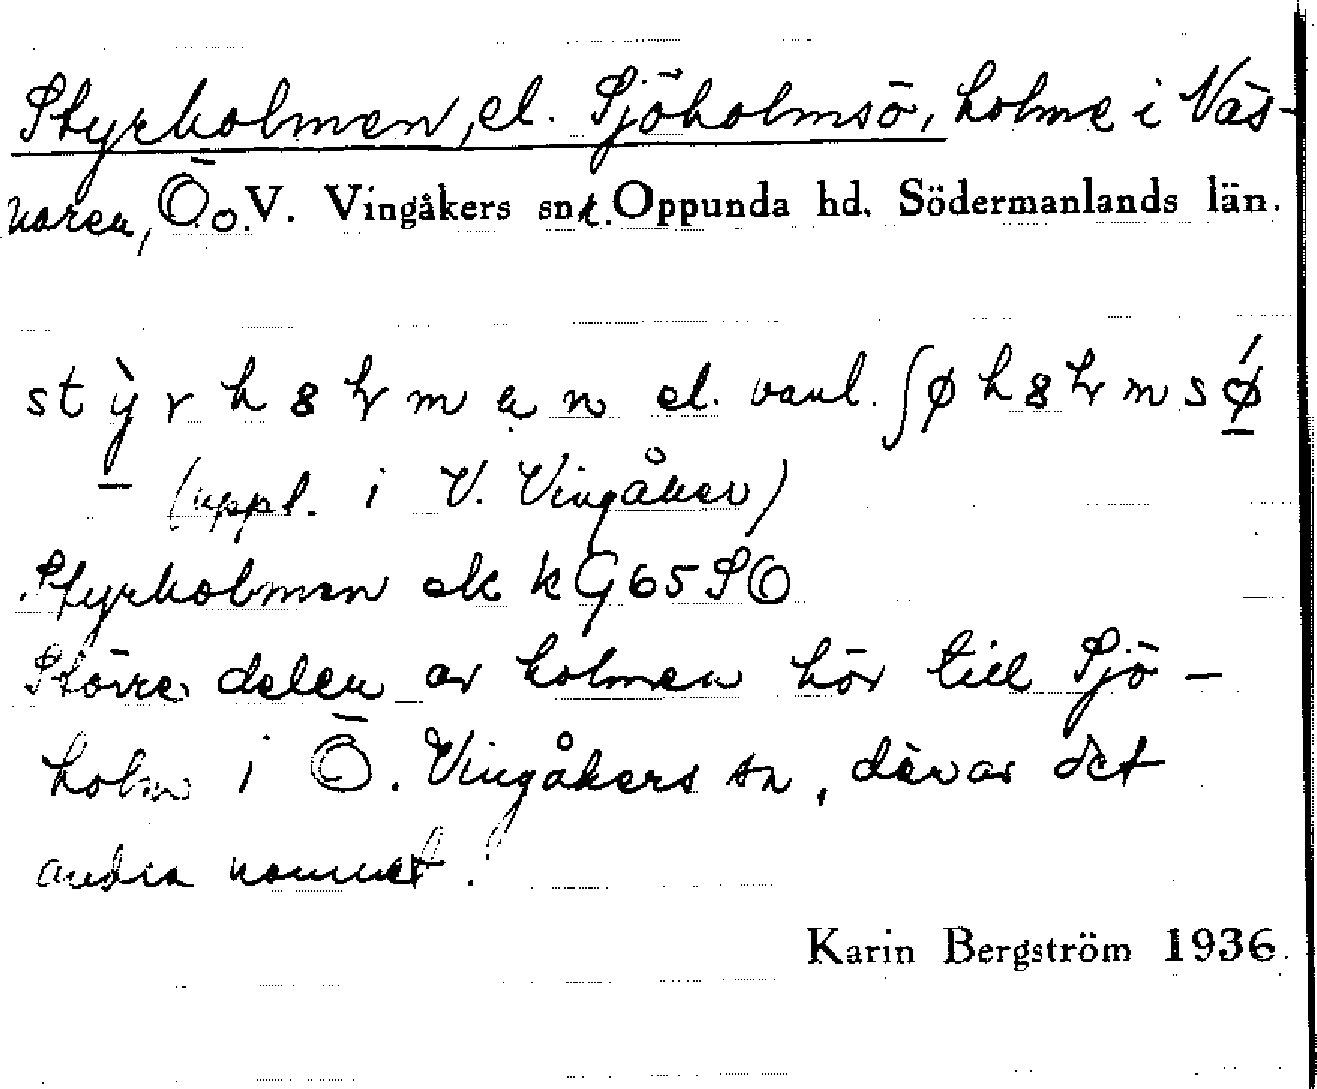 Styrholmen, el. Sjöholmsö, holme i Väs-
naren, Ö. o. V. Vingåkers snr. Oppunda hd. Södermanlands län.
st ỳ r h 8 lr m a n el. vanl. ʃ ø h 8 lr m s ǿ
(uppl. i V. Vingåker)
Styrholmen ek k G 65 SO
Större delen av holmen hör till Sjö-
holm i Ö. Vingåkers sn, därav det
andra namnet.
Karin Bergström 1936.